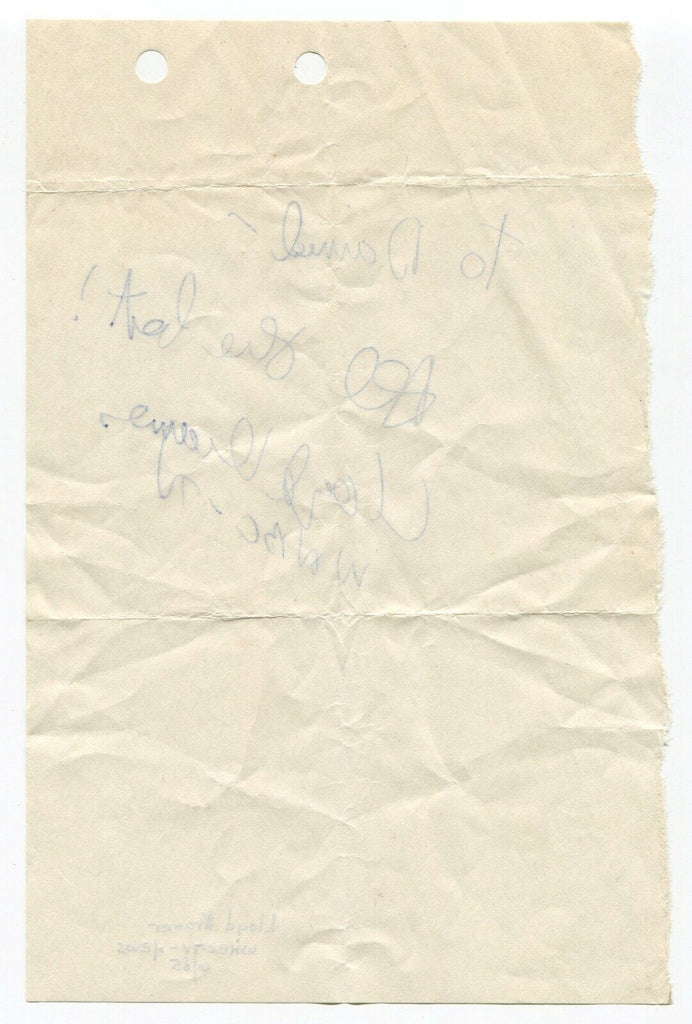 To Daniel -
All the best!
Lloyd Kramer
WNBC TV
Lloyd Kramer
WNBC-TV-News